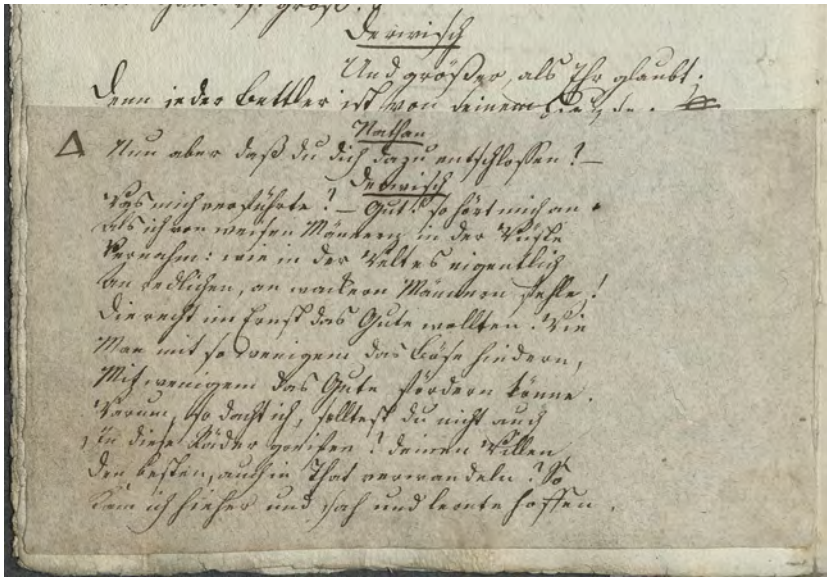 Haus ist groß.
Derwisch
Und größer, als Ihr glaubt;
Denn jeder Bettler ist von seinem Hause.
Nathan
Nun aber daß du dich dazu entschlossen? –
Derwisch
Was mich verführte? – Gut! so hört mich an.
Als ich von weisen Männern in der Wüste
Vernahm: wie in der Welt es eigentlich
An redlichen, an wackern Männern fehle,!
Die recht im Ernst das Gute wollten! Wie
Man mit so wenigem das Böse hindern,
Mit wenigem das Gute fördern könne.
Warum, so dacht ich, solltest du nicht auch
In diese Räder greifen? deinen Willen
Den besten, auch in That verwandeln? So
Kam ich hieher und sah und lernte hoffen.